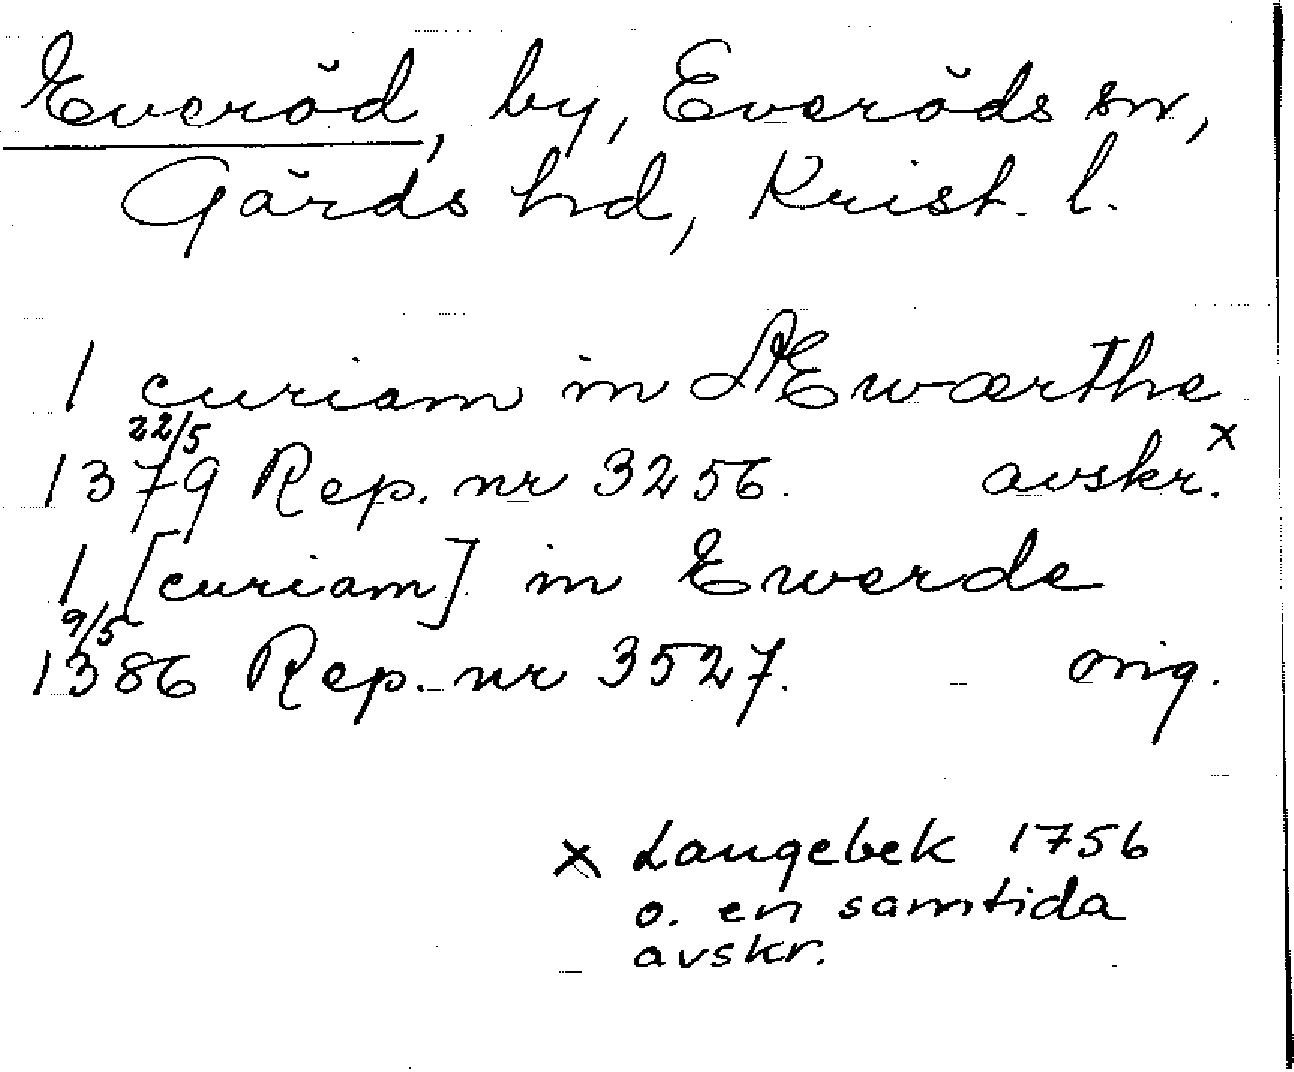 Everöd, by, Everöds sn,
Gärds hd, Krist. l.
1 curiam in ÆEwærthe
22/5
1379 Rep. nr 3256. avskr.x
1 [curiam] in Ewerde
9/5
1386 Rep. nr 3527. orig.
x Langebek 1756
o. en samtida
avskr.